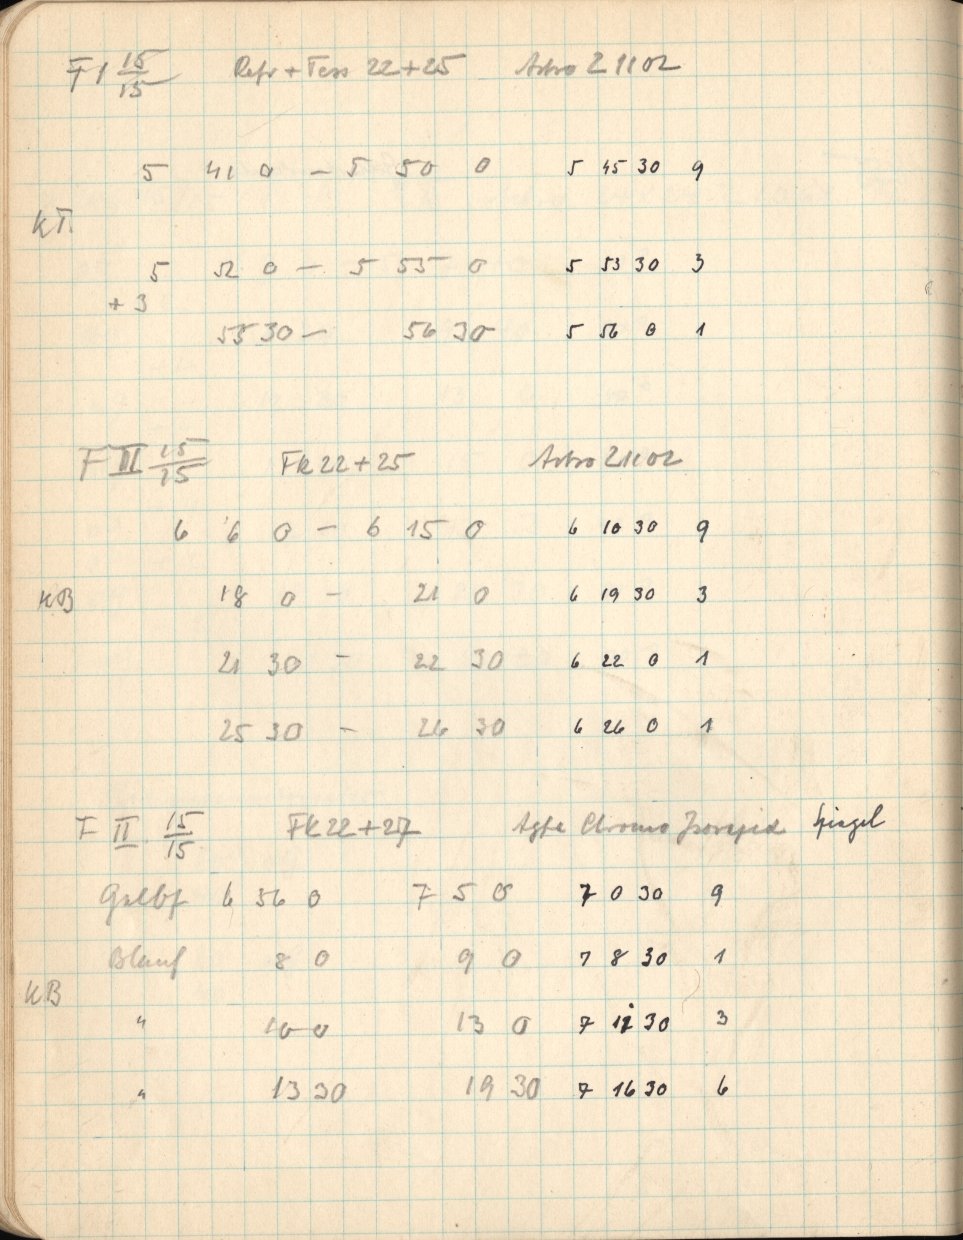 F I 15/15 Refr + Tess 22+25 Astro 21102
5 41 0 – 5 50 0 5 45 30 9
KT.
5 52 0 – 5 55 0 5 53 30 3
+ 3
55 30 – 56 30 5 56 0 1
F II 15/15 FK 22+25 Astro 21102
6 6 0 – 6 15 0 6 10 30 9
KB 18 0 – 21 0 6 19 30 3
21 30 – 22 30 6 22 0 1
25 30 – 26 30 6 26 0 1
F II 15/15 FK 22+27 Agfa Chromo Isorapid Spiegel
Gelbf 6 56 0 7 5 0 7 0 30 9
Blauf 8 0 9 0 7 8 30 1
KB
" 10 0 13 0 7 11 30 3
" 13 30 19 30 7 16 30 6